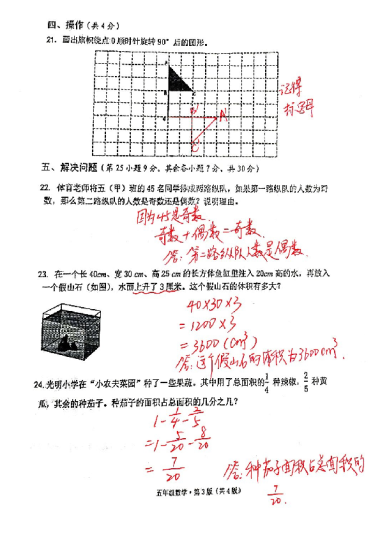 四、操作（共4分）
21. 画出旗帜绕点O顺时针旋转90°后的图形。
记得
标逗号
A
五、解决问题（第25小题9分，其余各小题7分，共30分）
22. 体育老师将五（甲）班的45名同学排成两路纵队，如果第一路纵队的人数为奇
数，那么第二路纵队的人数是奇数还是偶数？说明理由。
因为45是奇数
奇数+偶数=奇数
答：第二路纵队人数是偶数.
23. 在一个长40cm、宽30cm、高25cm的长方体鱼缸里注入20cm高的水，再放入
一个假山石（如图），水面上升了3厘米。这个假山石的体积有多大？
40×30×3
=1200×3
=3600(cm³)
答：这个假山石的体积为3600cm³.
24. 光明小学在“小农夫菜园”种了一些果蔬。其中用了总面积的1/4种辣椒，2/5种黄
瓜，其余的种茄子。种茄子的面积占总面积的几分之几？
1-1/4-2/5
=1-5/20-8/20
=7/20
答：种茄子面积占总面积的
7/20.
五年级数学·第3版（共4版）